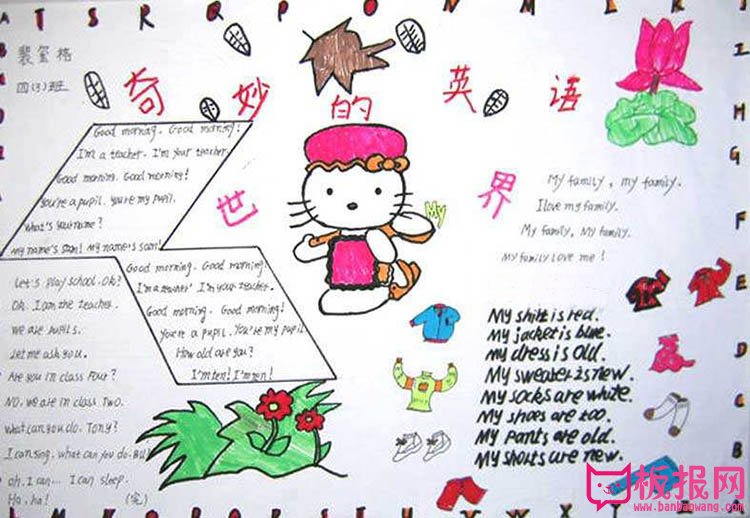 T S R Q P O N M L K J
裴玺格
四(3)班
奇妙的英语
世界
My
Good morning. Good morning!
I'm a teacher. I'm your teacher.
Good morning. Good morning!
You're a pupil. you're my pupil.
What's your name?
My name's Sam! My name's Sam!
Let's play school. Ok?
Ok. I am the teacher.
We are pupils.
Let me ask you.
Are you in class Four?
No, we are in class Two.
What can you do, Tony?
I can sing. what can you do. Bill
oh. I can... I can sleep.
Ha, ha!
(完)
Good morning. Good morning.
I'm a teacher. I'm your teacher.
Good morning. Good morning!
You're a pupil. You're my pupil
How old are you?
I'm ten! I'm ten!
My family, my family.
I love my family.
My family, My family.
My family love me!
My shirt is red.
My jacket is blue.
My dress is old.
My sweater is new.
My socks are white.
My shoes are too.
My pants are old.
My shorts are new.
I
H
G
F
E
D
C
B
板报网
www.banbaowang.com